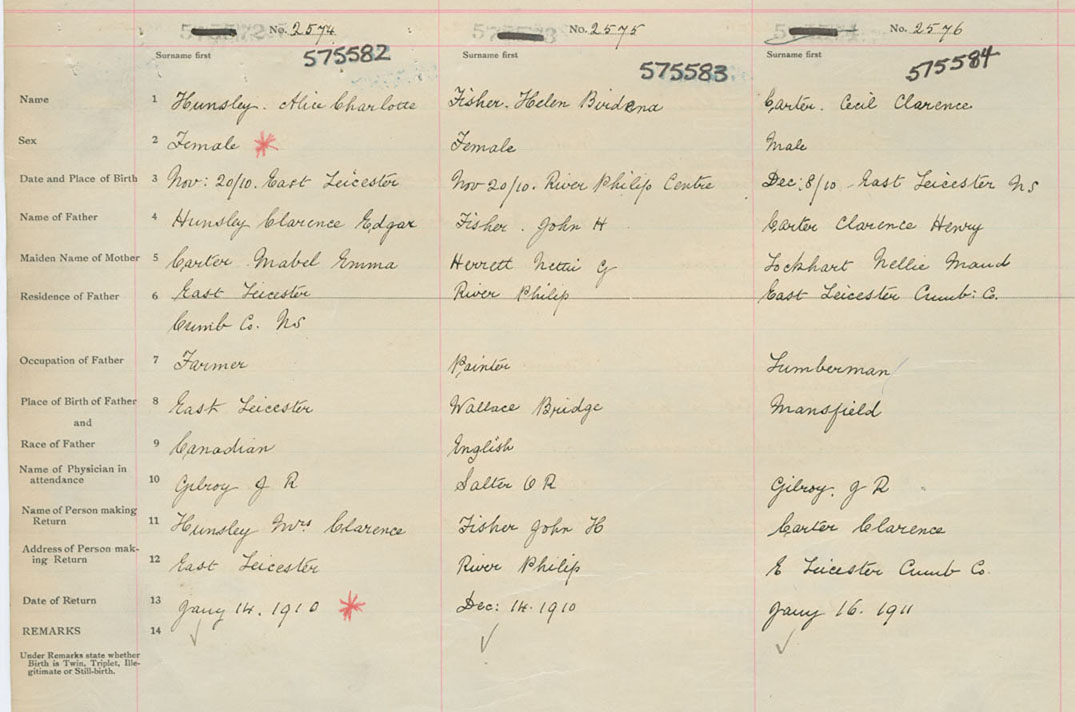 No. 2574 No. 2575 No. 2576
Surname first Surname first Surname first
575582 575583 575584
Name 1 Hunsley. Alice Charlotte Fisher. Helen Birdena Carter. Cecil Clarence
Sex 2 Female Female Male
Date and Place of Birth 3 Nov: 20/10. East Leicester Nov 20/10. River Philip Centre Dec: 8/10 East Leicester NS
Name of Father 4 Hunsley Clarence Edgar Fisher. John H Carter Clarence Henry
Maiden Name of Mother 5 Carter Mabel Emma Herrett Nettie G Lockhart Nellie Maud
Residence of Father 6 East Leicester River Philip East Leicester Cumb: Co.
Cumb Co. NS
Occupation of Father 7 Farmer Painter Lumberman
Place of Birth of Father 8 East Leicester Wallace Bridge Mansfield
and
Race of Father 9 Canadian English
Name of Physician in
attendance 10 Gilroy J R Salter O R Gilroy. J R
Name of Person making
Return 11 Hunsley Mrs Clarence Fisher John H Carter Clarence
Address of Person mak-
ing Return 12 East Leicester River Philip E Leicester Cumb Co.
Date of Return 13 Jany 14. 1910 Dec: 14. 1910 Jany 16. 1911
REMARKS 14
Under Remarks state whether
Birth is Twin, Triplet, Ille-
gitimate or Still-birth.